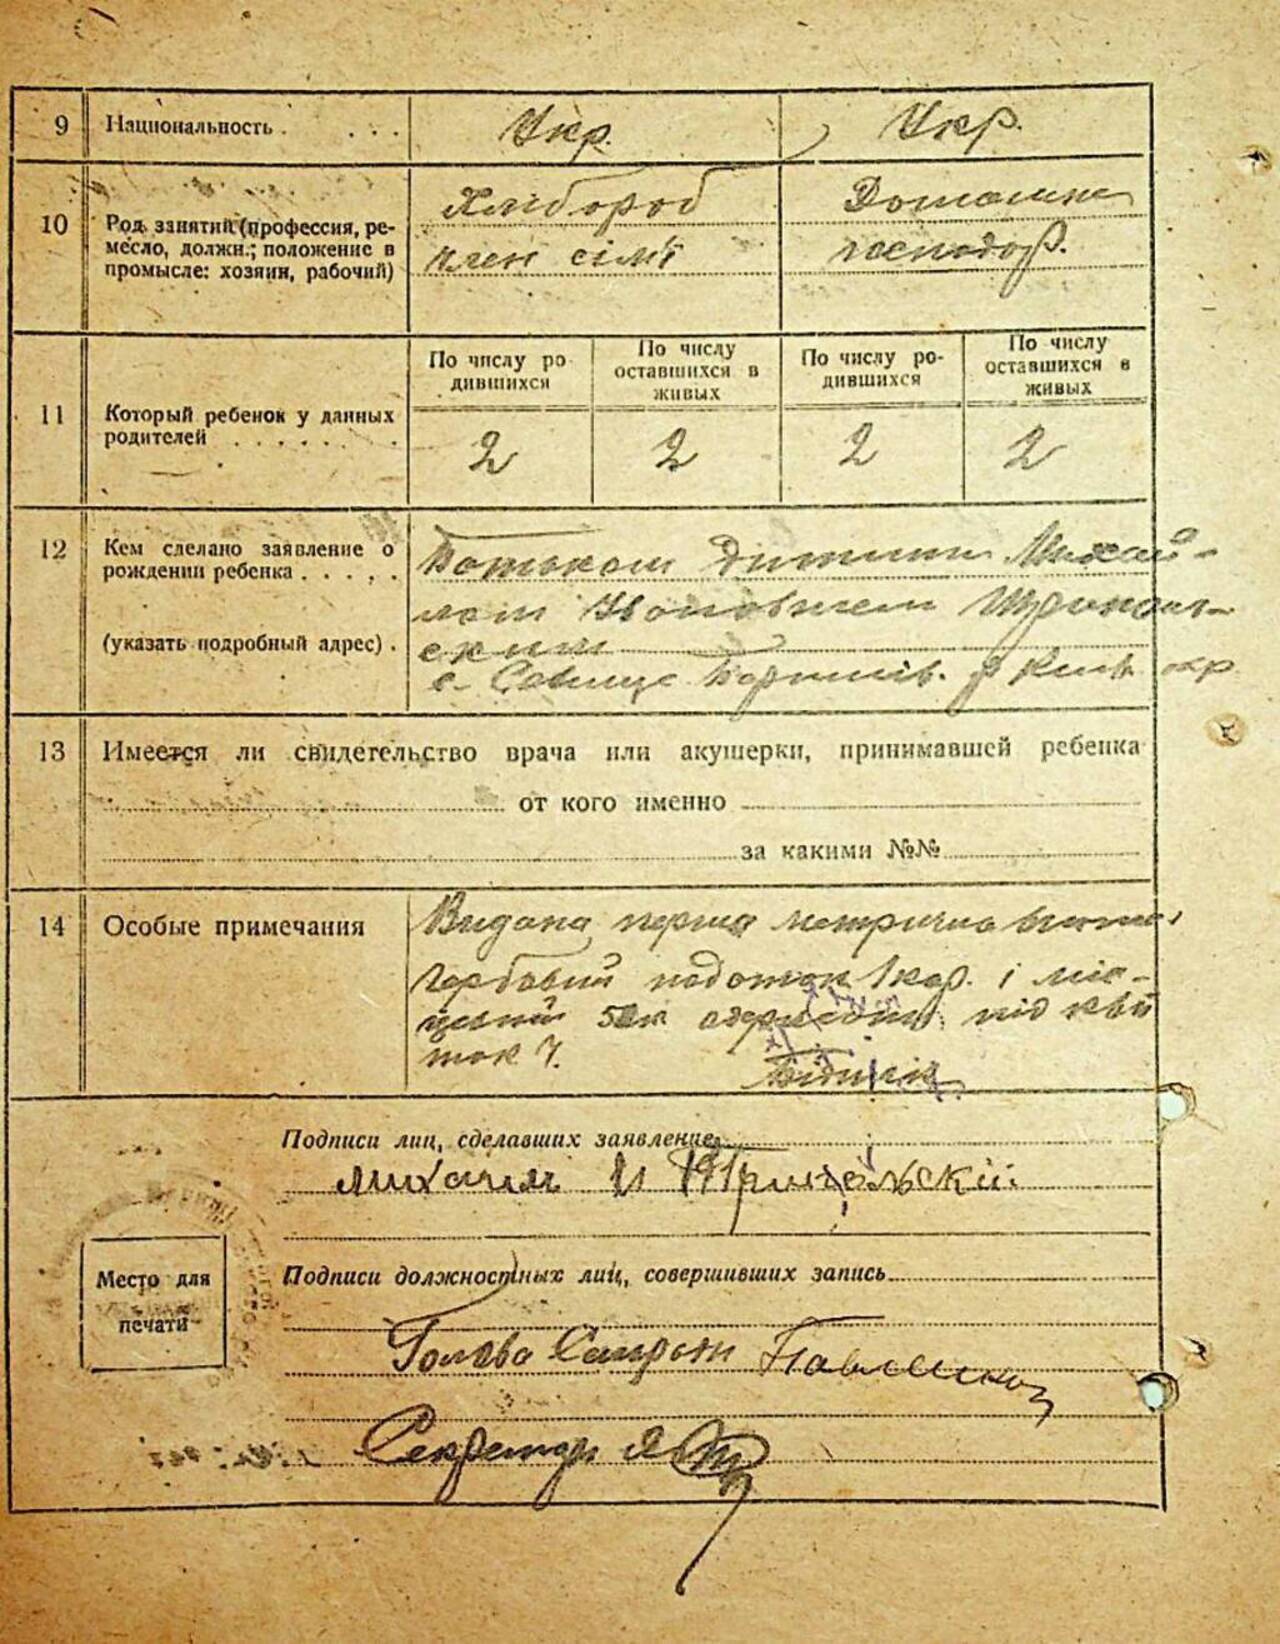 9 Национальность . . . . Укр. Укр.
10 Род занятий (профессия, ре-
месло, должн.; положение в
промысле: хозяин, рабочий)
Хлібороб
член сім'ї
Домашне
господар.
11 Который ребенок у данных
родителей . . . . . . .
По числу ро-
дившихся
По числу
оставшихся в
живых
По числу ро-
дившихся
По числу
оставшихся в
живых
2 2 2 2
12 Кем сделано заявление о
рождении ребенка . . . . .
(указать подробный адрес) .
Батьком дитини Михай-
лом
ским
с. Бориспів. р Київ окр
13 Имеется ли свидетельство врача или акушерки, принимавшей ребенка
от кого именно
за какими №№
14 Особые примечания
Видана перша метрична
Гербовий податок 1 кар. і міс-
цевий 50к одержано під кви
ток 7.
Подписи лиц, сделавших заявление
Михаил И
Место для
печати
Подписи должностных лиц, совершивших запись
Голова Сільради Павленко
Секретар